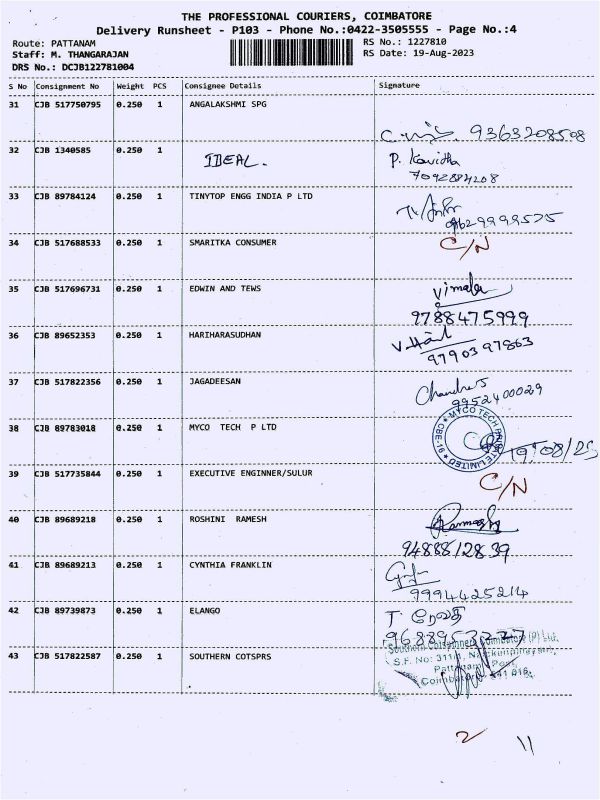 THE PROFESSIONAL COURIERS, COIMBATORE
Delivery Runsheet - P103 - Phone No.:0422-3505555 - Page No.:4
Route: PATTANAM
RS No.: 1227810
Staff: M. THANGARAJAN
RS Date: 19-Aug-2023
DRS No.: DCJB122781004
S No Consignment No Weight PCS Consignee Details Signature
31 CJB 517750795 0.250 1 ANGALAKSHMI SPG
9363208508
32 CJB 1340585 0.250 1 IDEAL. P. Kavitha
7092884208
33 CJB 89784124 0.250 1 TINYTOP ENGG INDIA P LTD
9629999575
34 CJB 517688533 0.250 1 SMARITKA CONSUMER C/N
35 CJB 517696731 0.250 1 EDWIN AND TEWS Vimala
9788475999
36 CJB 89652353 0.250 1 HARIHARASUDHAN V. Hari
9790397863
37 CJB 517822356 0.250 1 JAGADEESAN
9952400029
38 CJB 89783018 0.250 1 MYCO TECH P LTD
MYCO TECH PRIVATE LIMITED
CBE-19
19/08/23
39 CJB 517735844 0.250 1 EXECUTIVE ENGINNER/SULUR C/N
40 CJB 89689218 0.250 1 ROSHINI RAMESH
9488812839
41 CJB 89689213 0.250 1 CYNTHIA FRANKLIN
9994425214
42 CJB 89739873 0.250 1 ELANGO T ரேவதி
43 CJB 517822587 0.250 1 SOUTHERN COTSPRS
Southern Cotspinners Coimbatore (P) Ltd.
S.F. No: 311/1,
Pattanam Post,
Coimbatore 641 016.
2 11